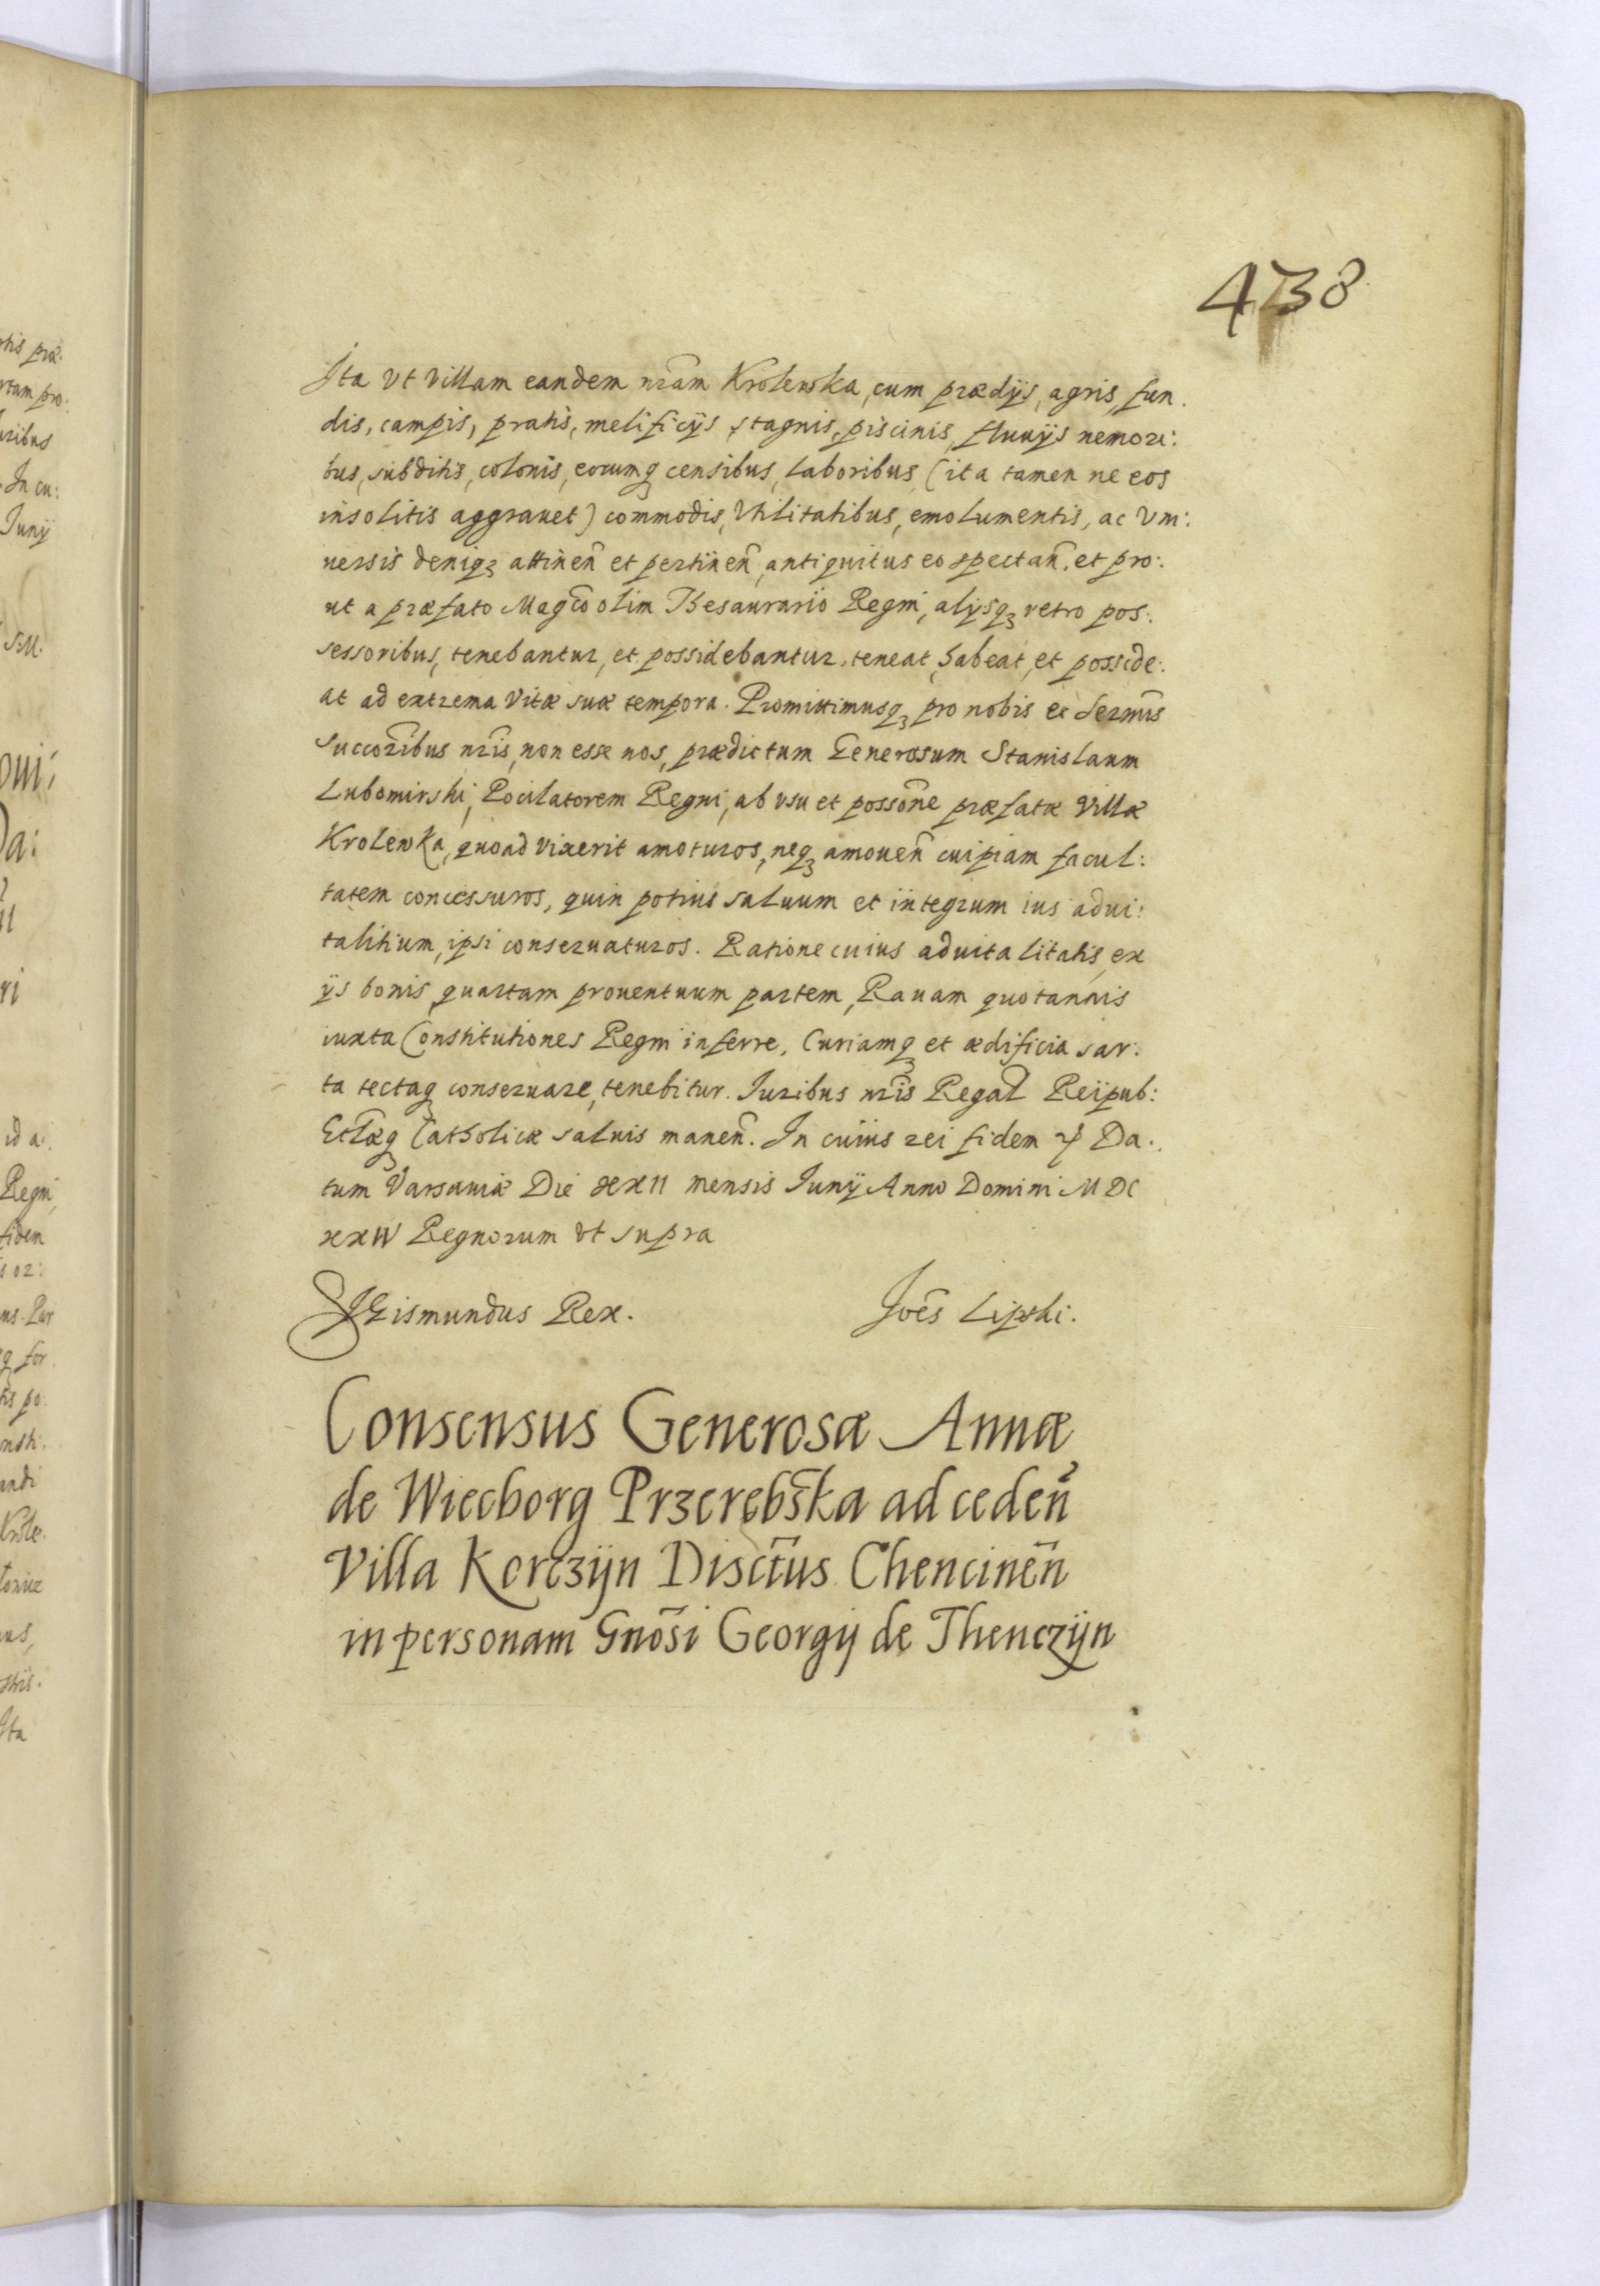 438
Ita vt villam eandem nr̃am Krolewska, cum prædijs, agris, fun.
dis, campis, pratis, melificijs stagnis, piscinis, fluuijs nemori:
bus, subditis, colonis, eorumq₃ censibus, laboribus, (ita tamen ne eos
insolitis aggrauet) commodis, vtilitatibus, emolumentis, ac vni:
uersis deniq₃ attinen̄ et pertinen̄, antiquitus eo spectan̄. et pro:
ut a præfato Magc̃o olim Thesaurario Regni, alijsq₃ retro pos:
sessoribus, tenebantur, et possidebantur, teneat, habeat, et posside:
at ad extrema vitæ suæ tempora. Promittimusq₃ pro nobis et Sermĩs
succor̃ibus nr̃is, non esse nos, prædictum Generosum Stanislaum
Lubomirski, Pocilatorem Regni, ab vsu et possõne præfatæ villæ
Krolewka, quoad vixerit amoturos, neq₃ amouen̄ cuipiam facul:
tatem concessuros, quin potius saluum et integrum ius adui:
talitium, ipsi conseruaturos. Ratione cuius aduitalitatis, ex
ijs bonis quartam prouentuum partem, Rauam quotannis
iuxta Constitutiones Regni inferre, Curiamq₃ et ædificia sar:
ta tectaq₃ conseruare, tenebitur. Iuribus nr̃is Regal̃ Reipub:
Ecl̃æq₃ Catholicæ saluis manen̄. In cuius rei fidem ꝛ Da:
tum Varsauiæ Die xxii mensis Iunij Anno Domini MDC
xxiv Regnorum vt supra
Sigismundus Rex. Ioẽs Lipski.
Consensus Generosæ Annæ
de Wiecborg Przerebska ad ceden̄
Villa Korczijn Disctũs Chencinen̄
in personam Gnõsi Georgij de Thenczijn